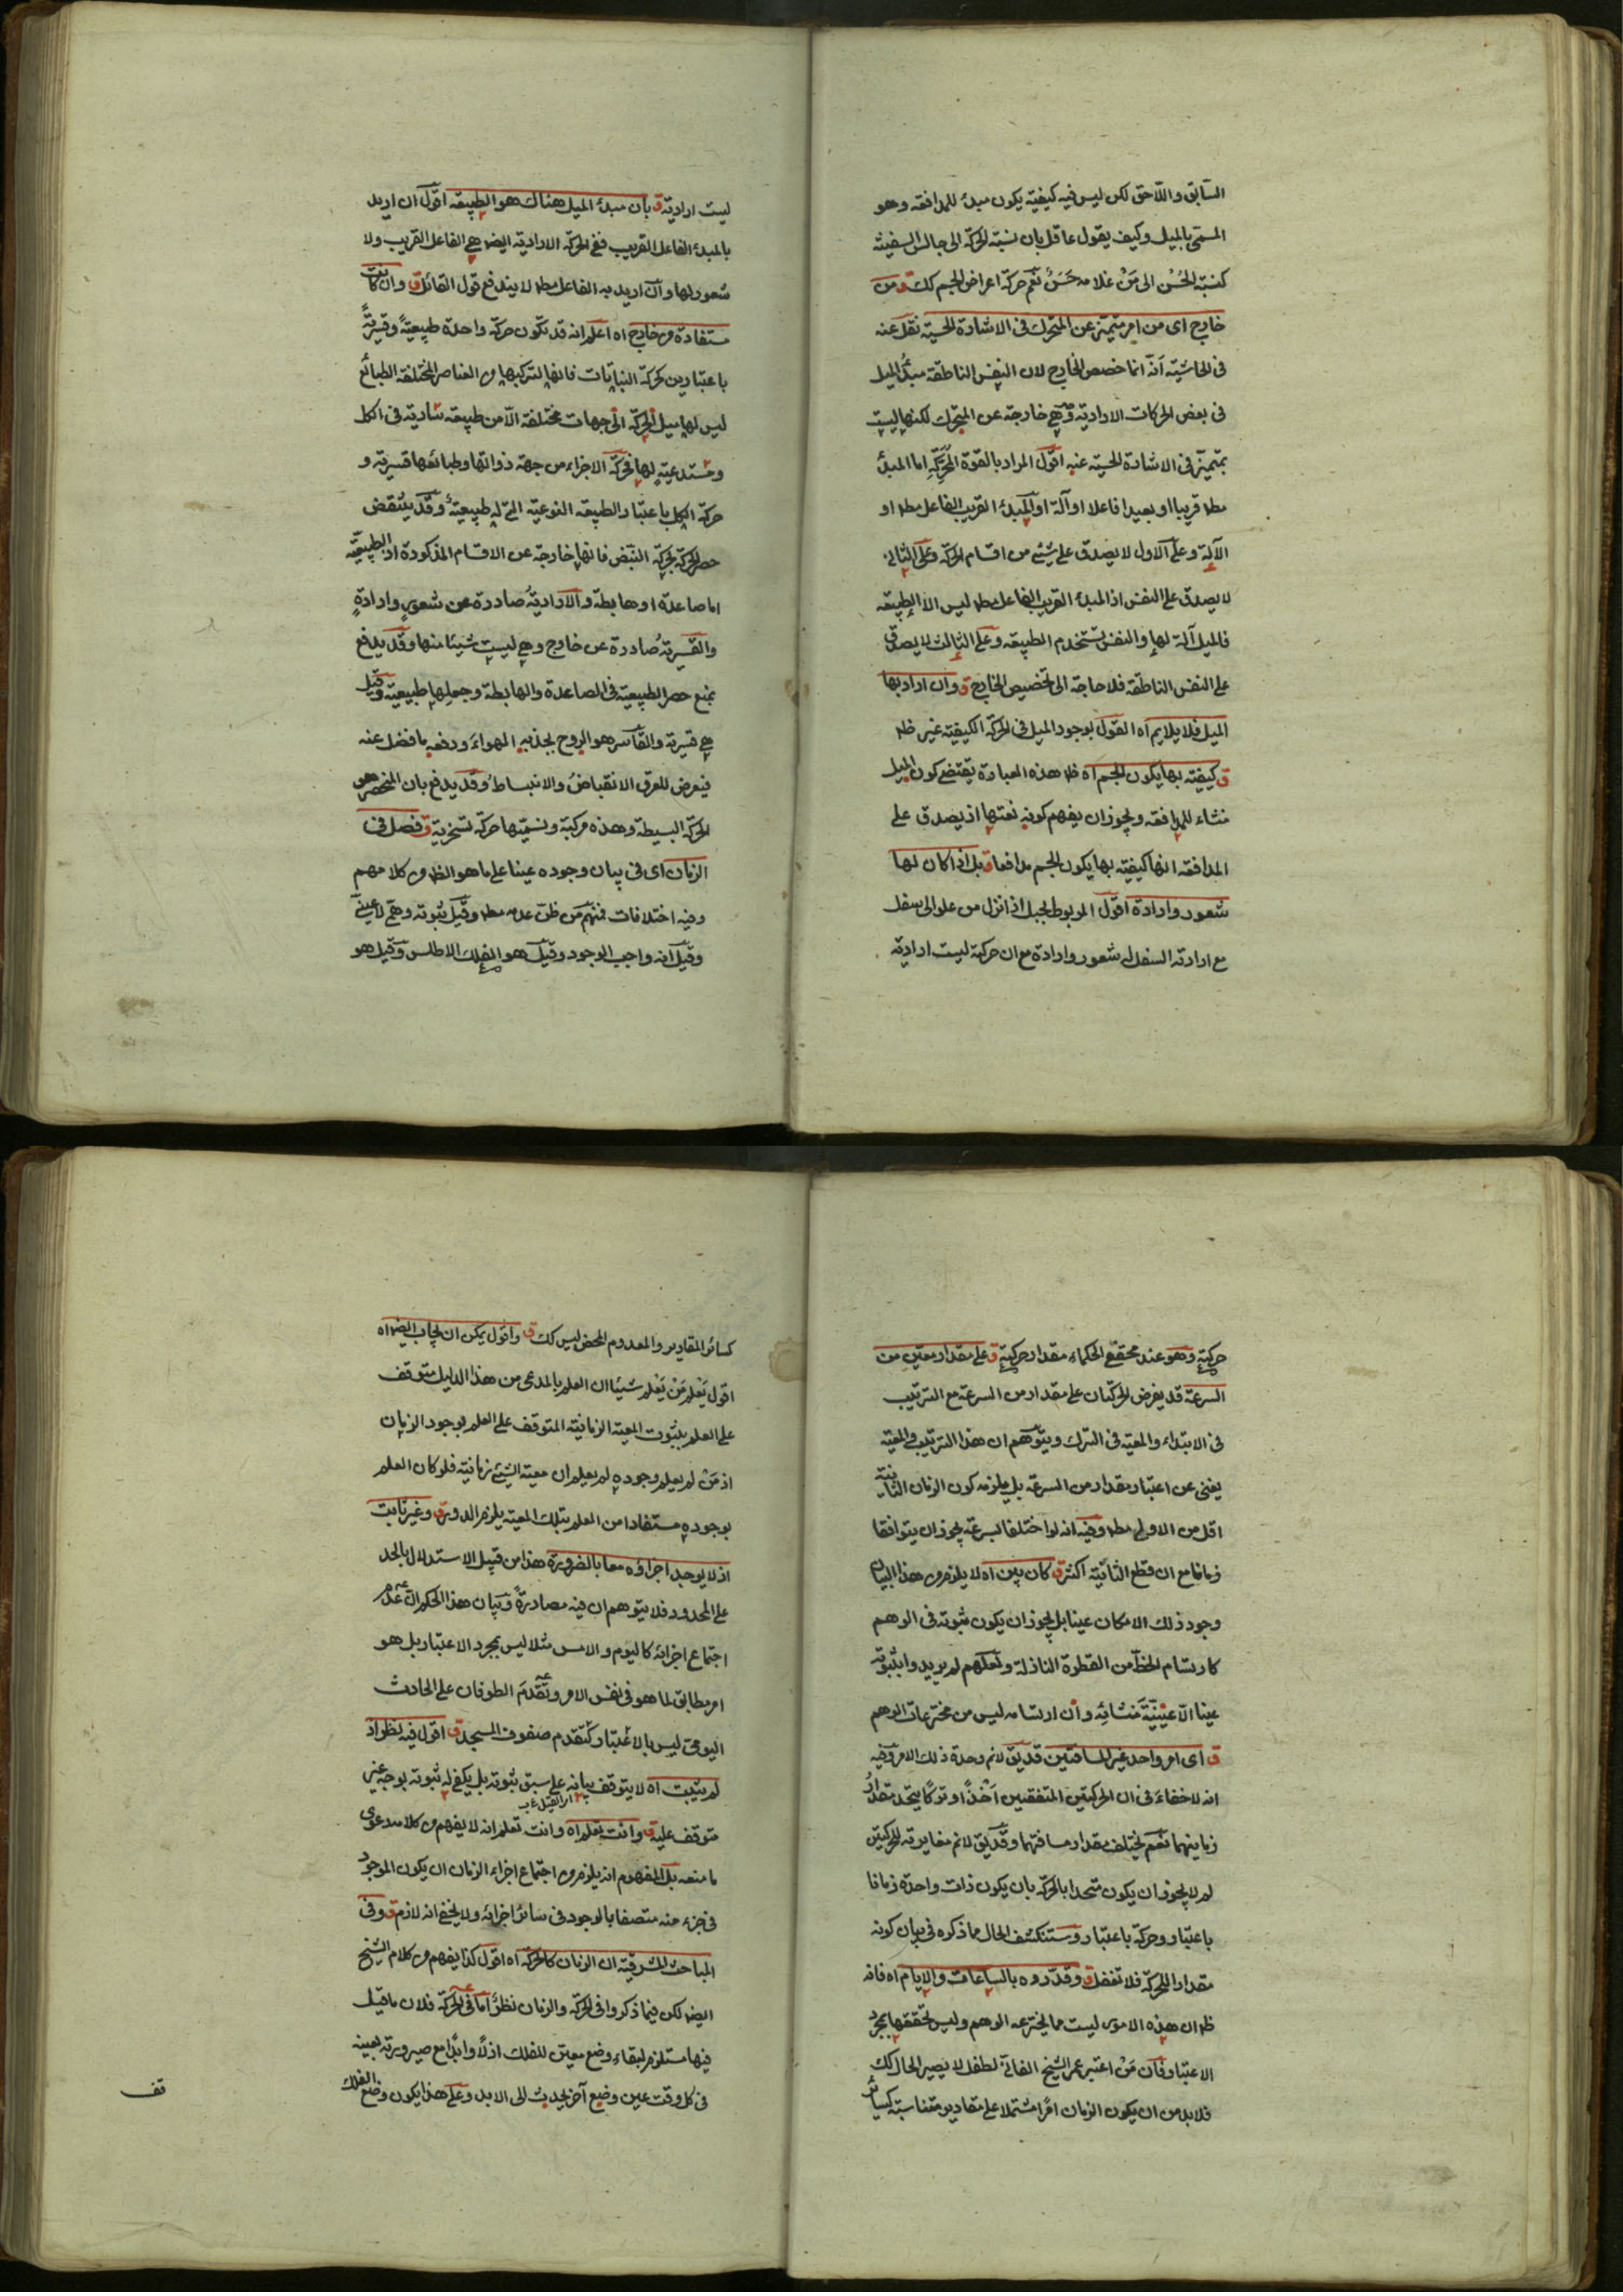 السابق واللاحق لكن ليس فيه كيفية يكون مبدء للمدافعة وهو
المسمى بالميل وكيف يقول عاقل بان نسبة الحركة الى جالس السفينة
كنسبة الحُسْن الى مَنْ غلامه حَسَنٌ نعم حركة اعراض الجسم كك ق من
خارج اى من امر متميز عن المتحرك فى الاشارة الحسية نقل عنه
فى الحاشية انه انما خصص الخارج لان النفس الناطقة مبدءُ الميل
فى بعض الحركات الارادية وهى خارجة عن المتحرك لكنها ليست
بمتميزة فى الاشارة الحسية عنه اقول المراد بالقوة المُحَرِّكَةِ اما المبدء
مطه قريبا او بعيدا فاعلا او آلة او المبدء القريب الفاعل مطه او
الآلة وعلى الاول لا يصدق على شئ من اقسام الحركة وعلى الثانى
لا يصدق على النفس اذ المبدء القريب الفاعل مطه ليس الا الطبيعة
فالميل آلة لها والنفس تستخدم الطبيعة وعلى الثالث لا يصدق
على النفس الناطقة فلا حاجة الى تخصيص الخارج ق وان اراد بها
الميل فلا يلايم اه القول بوجود الميل فى الحركة الكيفية غير ظه
ق كيفية بها يكون الجسم اه ظه هذه العبارة يقتضى كون الميل
منشاء للمدافعة ويجوز ان يفهم كونه نفسها اذ يصدق على
المدافعة انها كيفية بها يكون الجسم مدافعا ق بل اذا كان لها
شعور وارادة اقول المربوط بحبل اذا نزل من علو الى سفل
مع ارادته السفل له شعور وارادة مع ان حركته ليست ارادية
ليست ارادية ق بان مبدء الميل هناك هو الطبيعة اقول ان اريد
بالمبدء الفاعل القريب ففى الحركة الارادية ايضا هى الفاعل القريب ولا
شعور لها وان اريد به الفاعل مطه لا يندفع قول القائل ق وان كانت
مستفادة من خارج اه اعلم انه قد تكون حركة واحدة طبيعيةً وقسريةً
باعتبارين كحركة النباتات فانها لتركبها من العناصر المختلفة الطبائع
ليس لها ميل الحركة الى جهات مختلفة الا من طبيعة سارية فى الكل
ومستدعيةٍ لها فحركة الاجزاء من جهة ذواتها وطبائعها قسرية و
حركة الكل باعتبار الطبيعة النوعية التى له طبيعيةٌ وقد ينتقض
حصر الحركة بحركة النبض فانها خارجة عن الاقسام المذكورة اذ الطبيعية
اما صاعدة او هابطة والارادية صادرة عن شعورٍ وارادةٍ
والقسرية صادرة عن خارج وهى ليست شيئا منها وقد يدفع
بمنع حصر الطبيعية فى الصاعدة والهابطة وجعلها طبيعية وقيل
هى قسرية والقاسر هو الروح بجذبه الهواءَ ودفعه ما فضل عنه
فيعرض للعرق الانقباضُ والانبساطُ وقد يدفع بان المنحصر هو
الحركة البسيطة وهذه مركبة ونسميها حركة تسخرية ق فصل فى
الزمان اى فى بيان وجوده عينا على ما هو الظه من كلامهم
وفيه اختلافات فمنهم مَن ظن عدمه مطه وقيل ثبوته وهمى لا عينى
وقيل انه واجب الوجود وقيل هو الفلك الاطلس وقيل هو
حركته وهو عند محققى الحكماء مقدار حركته ق على مقدار معين من
السرعة قد يفرض الحركتان على مقدار من السرعة مع الترتيب
فى الابتداء والمعية فى الترك ويتوهم ان هذا الترتيب والمعية
يغنى عن اعتبار مقدار من السرعة بل يلزمه كون الزمان الثانية
اقل من الاولى مطه وفيه انه لو اختلفا بسرعة يجوز ان يتوافقا
زمانا مع ان قطع الثانية اكثر ق كان بين اه لا يلزم من هذا البيان
وجود ذلك الامكان عينا بل يجوز ان يكون ثبوته فى الوهم
كارتسام الخط من القطرة النازلة ولعلهم لم يريدوا بثبوته
عينا الا عَيْنِيَّةَ مَنشائِه وان ارتسامه ليس من مخترعات الوهم
ق اى امر واحد غير المسافتين قد يق لانم وحدة ذلك الامر وفيه
انه لا خفاءَ فى ان الحركتين المتفقتين اَخْذًا وتركًا يتحد مقدارُ
زمانيهما نعم يختلف مقدار مسافتهما وقد يق لانم مغايرته للحركتين
لم لا يجوز ان يكون متحدا بالحركة بان يكون ذات واحدة زمانا
باعتبار وحركة باعتبار وستنكشف الحال مما ذكره فى بيان كونه
مقدارا للحركة فلا تغفل ق وقدّروه بالساعات والايام اه فانه
ظه ان هذه الامور ليست مما يخترعه الوهم وليس تحققها بمجرد
الاعتبار فان مَنْ اعتبر عمر الشيخ الفانى لطفل لا يصير الحال كك
فلا بد من ان يكون الزمان امرًا مشتملا على مقادير متناسبة كسائر
كسائر المقادير والمعدوم المحض ليس كك ق واقول يمكن ان يجاب ايضا اه
اقول يَعْلم مَنْ يَعْلم شيئا ان العلم بالمدعى من هذا الدليل متوقف
على العلم بثبوت المعية الزمانية المتوقف على العلم بوجود الزمان
اذ مَنْ لم يعلم وجوده لم يعلم ان معية الشيئ زمانية فلو كان العلم
بوجوده مستفادا من العلم بتلك المعية يلزم الدور ق وغير ثابت
اذ لا يوجد اجزاؤه معا بالضرورة هذا من قبيل الاستدلال بالحد
على المحدود فلا يتوهم ان فيه مصادرةً وبيان هذا الحكم ان عدم
اجتماع اجزائه كاليوم والامس مثلا ليس بمجرد الاعتبار بل هو
امر مطابق لما هو فى نفس الامر وتقدم الطوفان على الحادث
اليومى ليس بالاعتبار كتقدم صفوف المسجد ق اقول فيه نظر اذ
لم يثبت اه لا يتوقف بيانه على سبق ثبوته بل يكفى له ثبوته بوجه غير
متوقف عليه ق وانت تعلم اه وانت تعلم انه لا يفهم من كلامه دعوى
ما منعه بل المفهوم انه يلزم من اجتماع اجزاء الزمان ان يكون الموجود
فى جزء منه متصفا بالوجود فى سائر اجزائه ولا يخفى انه لازم ق وفى
المباحث المشرقية ان الزمان كالحركة اه اقول كذا يفهم من كلام الشيخ
ايضا لكن فيما ذكروا فى الحركة والزمان نظرٌ اما فى الحركة فلان ما قيل
فيها مستلزم لبقاء وضع معين للفلك ازلًا وابدًا مع صيرورته بعينه
فى كل وقت عين وضع آخر يحدث الى الابد وعلى هذا يكون وضع الفلك
قف